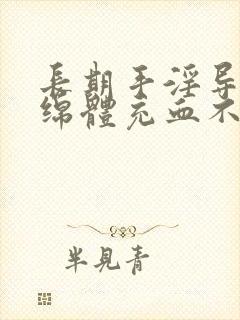 長期手淫导
绵體充血不
半見青